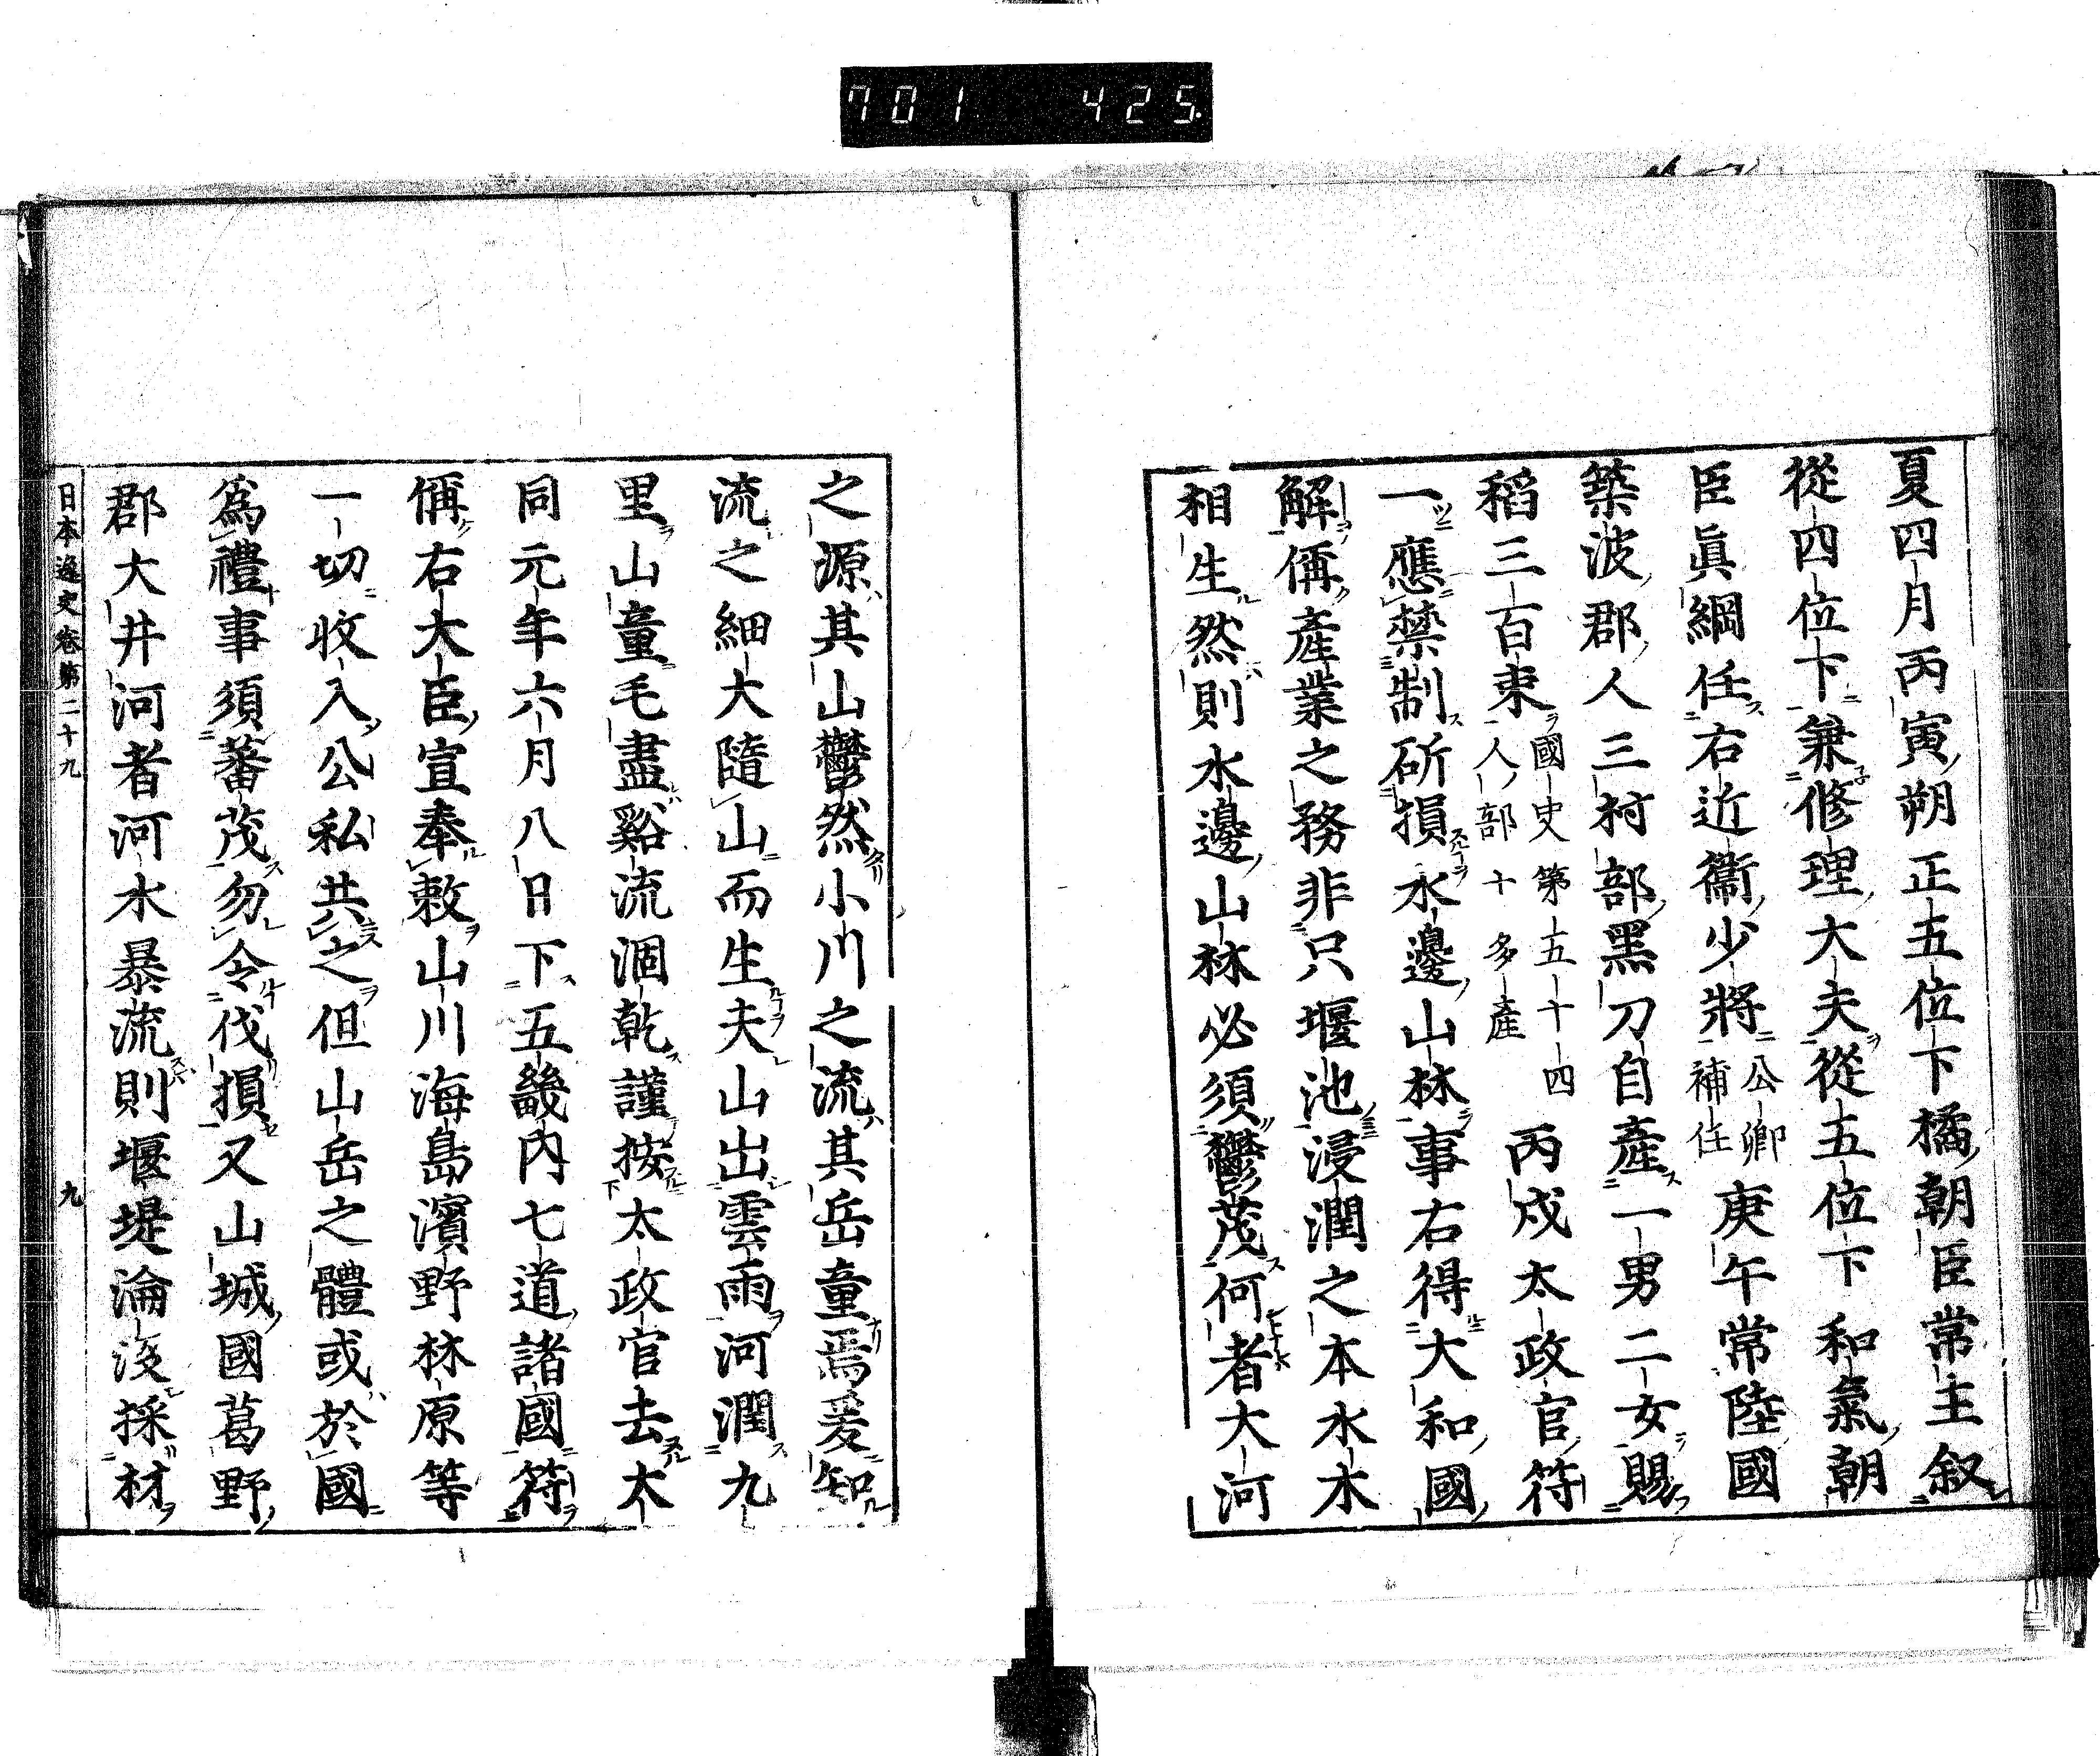 701 425
夏四月丙寅朔正五位下橘朝臣常主叙
從四位下兼修理大夫從五位下和氣朝
臣眞綱任右近衞少將公卿補任庚午常陸國
築波郡人三村部黑刀自產一男二女賜
稻三百束國史第五十四人部十多產丙戌太政官符
一應禁制斫損水邊山林事右得大和國
解偁產業之務非只堰池浸潤之本水木
相生然則水邊山林必須鬱茂何者大河
之源其山鬱然小川之流其岳童焉爰知
流之細大隨山而生夫山出雲雨河潤九
里山童毛盡谿流涸乾謹按太政官去大
同元年六月八日下五畿內七道諸國符
偁右大臣宣奉敕山川海島濱野林原等
一切收入公私共之但山岳之體或於國
爲禮事須蕃茂勿令伐損又山城國葛野
郡大井河者河水暴流則堰堤淪沒採材
日本逸史卷第二十九 九